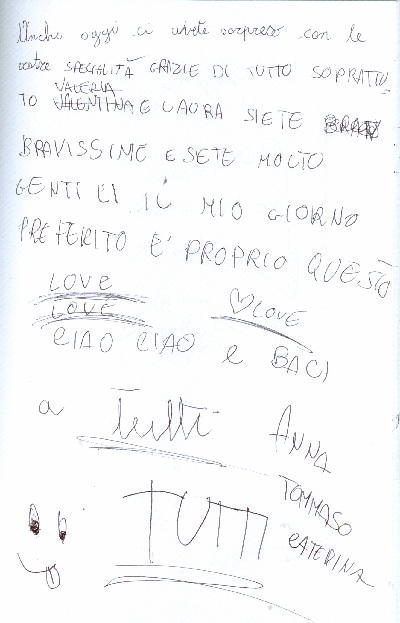 Anche oggi ci avete sorpreso con le
vostre SPECIALITÀ GRAZIE DI TUTTO SOPRATTU
TO VALERIA VALENTINA E LAURA SIETE
BRAVISSIME E SETE MOLTO
GENTILI IL MIO GIORNO
PREFERITO E' PROPRIO QUESTO
LOVE
LOVE ♡LOVE
CIAO CIAO e BACI
a tutti ANNA
TOMMASO
TUTTI CATERINA